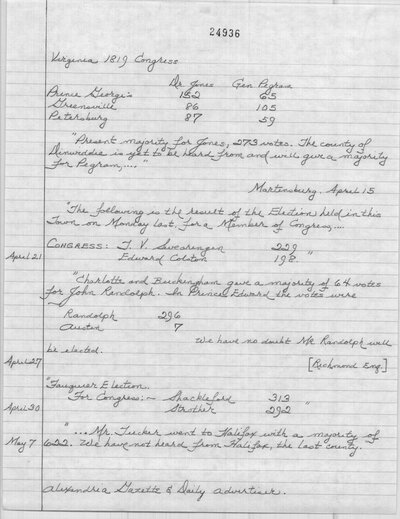 24936
Virginia, 1819 Congress
Dr. Jones Gen Pegram
Prince George's 152 65
Greensville 86 105
Petersburg 87 59
"Present majority for Jones, 273 votes. The county of
Dinwiddie is yet to be heard from and will give a majority
for Pegram,...."
Martensburg. April 15
"The following is the result of the Election held in this
Town on Monday last. For a Member of Congress,...
CONGRESS: T. V. Swearingen 229
April 21 Edward Colston 198 "
"Charlotte and Buckingham give a majority of 64 votes
for John Randolph. In Prince Edward the votes were
~
Randolph 296
Austin 7
We have no doubt Mr. Randolph will
be elected.
April 27 [Richmond Enq.]
"Fauquier Election.
For Congress: ~ Shackleford 313
April 30 Strother 292 "
"... Mr Tucker went to Halifax with a majority of
May 7 622. We have not heard from Halifax, the last county.
Alexandria Gazette & Daily Advertiser.